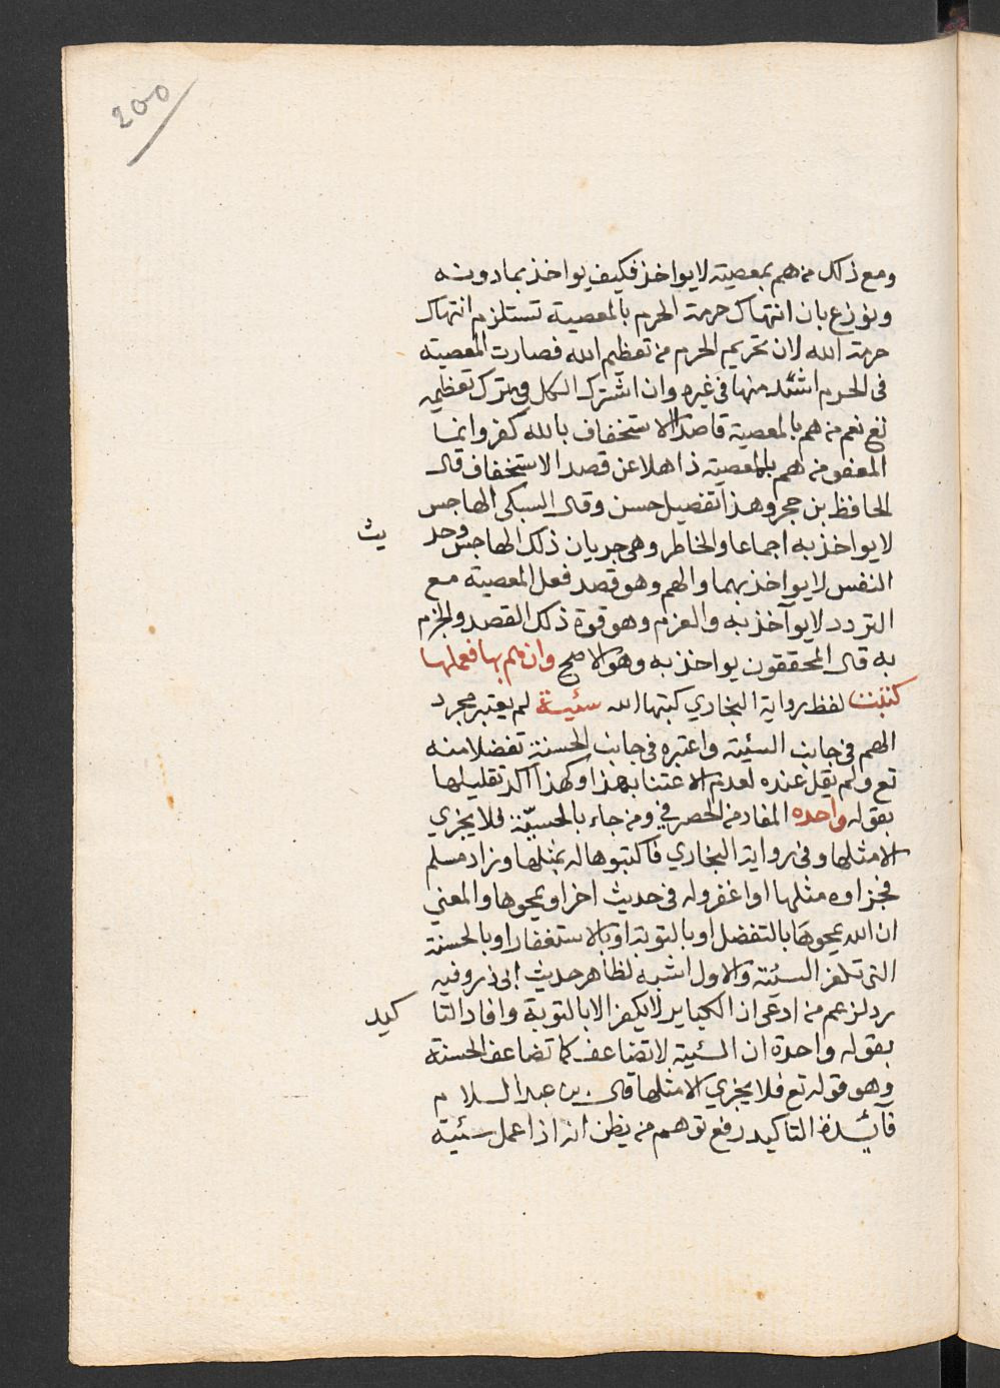 200
ومع ذلك من هم بمعصية لا يواخذ فكيف يواخذ بما دونه
ونوزع بان انتهاك حرمة الحرم بالمعصية تستلزم انتهاك
حرمة الله لان تحريم الحرم من تعظيم الله فصارت المعصية
في الحرم اشد منها في غيره وان اشترك الكل في ترك تعظيمه
تع نعم من هم بالمعصية قاصدا الاستخفاف بالله كفر وانما
المعفو من هم بالمعصية ذاهلا عن قصد الاستخفاف قال
الحافظ بن حجر وهذا تفصيل حسن وقال السبكي الهاجس
لا يواخذ به اجماعا والخاطر وهي جريان ذلك الهاجس وحد يث
النفس لا يواخذ بهما والهم وهو قصد فعل المعصية مع
التردد لا يوآخذ به والعزم وهو قوة ذلك القصد والجزم
به قال المحققون يواخذ به وهو الاصح وان هم بها فعملها
كتبت لفظ رواية البخاري كتبها الله سئية لم يعتبر مجرد
الهم في جانب السئية واعتبره في جانب الحسنة تفضلا منه
تع ولم يقل عنده لعدم الاعتنا بهذا وكهذا اكد تقليلها
بقوله واحده المفاد من الحصر في ومن جاء بالسيّئة فلا يجزي
الا مثلها وفي رواية البخاري فاكتبوها له بمثلها وزاد مسلم
فجزاوه مثلها او اغفر وله في حديث اخر او يمحوها والمعني
ان الله يمحوها بالتفضل او بالتوبة او بالاستغفار او بالحسنة
التي تكفر السئية والاول اشبه لظاهر حديث ابي ذر وفيه
رد لزعم من ادعى ان الكباير لا يكفر الا بالتوبة وافاد التا كيد
بقوله واحدة ان السئية لا تضاعف كما تضاعف الحسنة
وهو قوله تع فلا يجزي الا مثلها قال بن عبد السلام
فآئدة التاكيد رفع توهم من يظن انه اذا عمل سئية